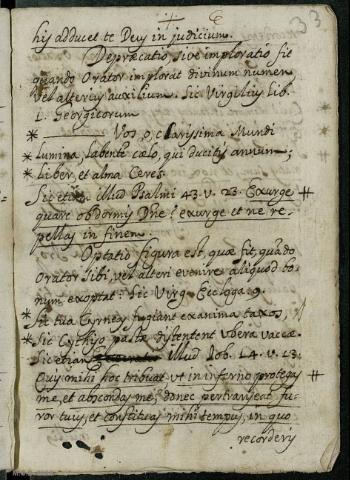 33
his adducet te Deus in judicium.
Depræcatio sive imploratio fit
quando Orator implorat divinum numen,
vel alterius auxilium. Sic Virgilius lib.
1. Georgicorum
* Vos, o, clarissima Mundi
* lumina, labente cælo, qui ducitis annum;
* Liber, et alma Ceres.
Sic etiam illud Psalmi 43. v. 23. Exurge #
quare obdormis Dñe? exurge et ne re-
pellas in finem.
Optatio figura est, quæ fit, quãdo
Orator sibi, vel alteri evenire aliquod bo-
num exoptat: Sic Virg. Ecloga: 9.
* Sic tua Cyrneas fugiant examina taxos,
* Sic Cythiso pasta distentent ubera vaccæ.
Sic etiam illud Iob. 14. v. 13.
Quis mihi hoc tribuat ut in inferno protegas #
me, et abscondas me, donec pertranseat fu-
ror tuus, et constituas mihi tempus, in quo
recorderis